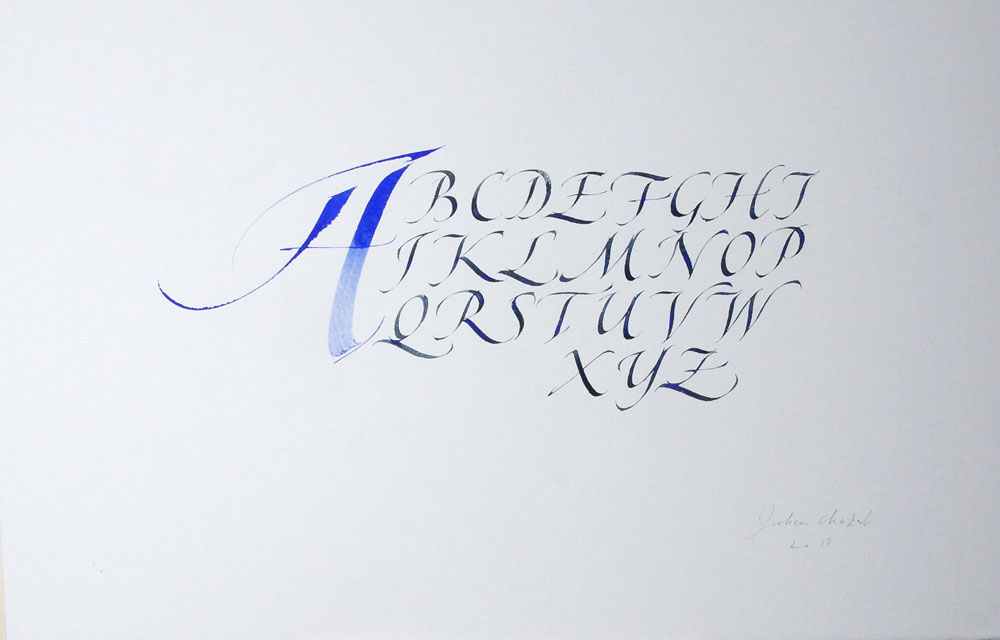 ABCDEFGHI
JKLMNOP
QRSTUVW
XYZ
Julien Chazal
2017